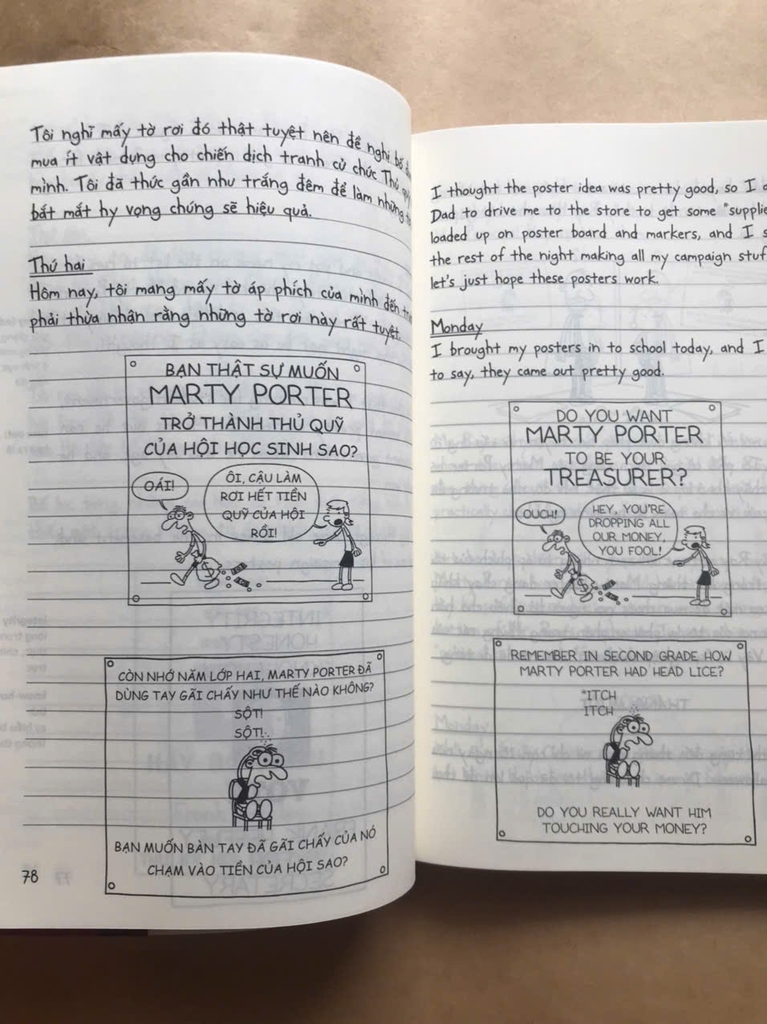 Tôi nghĩ mấy tờ rơi đó thật tuyệt nên đề nghị bố
mua ít vật dụng cho chiến dịch tranh cử chức Thủ
mình. Tôi đã thức gần như trắng đêm để làm những
bắt mắt hy vọng chúng sẽ hiệu quả.
Thứ hai
Hôm nay, tôi mang mấy tờ áp phích của mình đến
phải thừa nhận rằng những tờ rơi này rất tuyệt.
BẠN THẬT SỰ MUỐN
MARTY PORTER
TRỞ THÀNH THỦ QUỸ
CỦA HỘI HỌC SINH SAO?
OÁI!
ÔI, CẬU LÀM
RƠI HẾT TIỀN
QUỸ CỦA HỘI
RỒI!
CÒN NHỚ NĂM LỚP HAI, MARTY PORTER ĐÃ
DÙNG TAY GÃI CHẤY NHƯ THẾ NÀO KHÔNG?
SỘT!
SỘT!
BẠN MUỐN BÀN TAY ĐÃ GÃI CHẤY CỦA NÓ
CHẠM VÀO TIỀN CỦA HỘI SAO?
78
I thought the poster idea was pretty good, so I
Dad to drive me to the store to get some "supplie
loaded up on poster board and markers, and I s
the rest of the night making all my campaign stuf
let's just hope these posters work.
Monday
I brought my posters in to school today, and I
to say, they came out pretty good.
DO YOU WANT
MARTY PORTER
TO BE YOUR
TREASURER?
OUCH!
HEY, YOU'RE
DROPPING ALL
OUR MONEY,
YOU FOOL!
REMEMBER IN SECOND GRADE HOW
MARTY PORTER HAD HEAD LICE?
*ITCH
ITCH
DO YOU REALLY WANT HIM
TOUCHING YOUR MONEY?